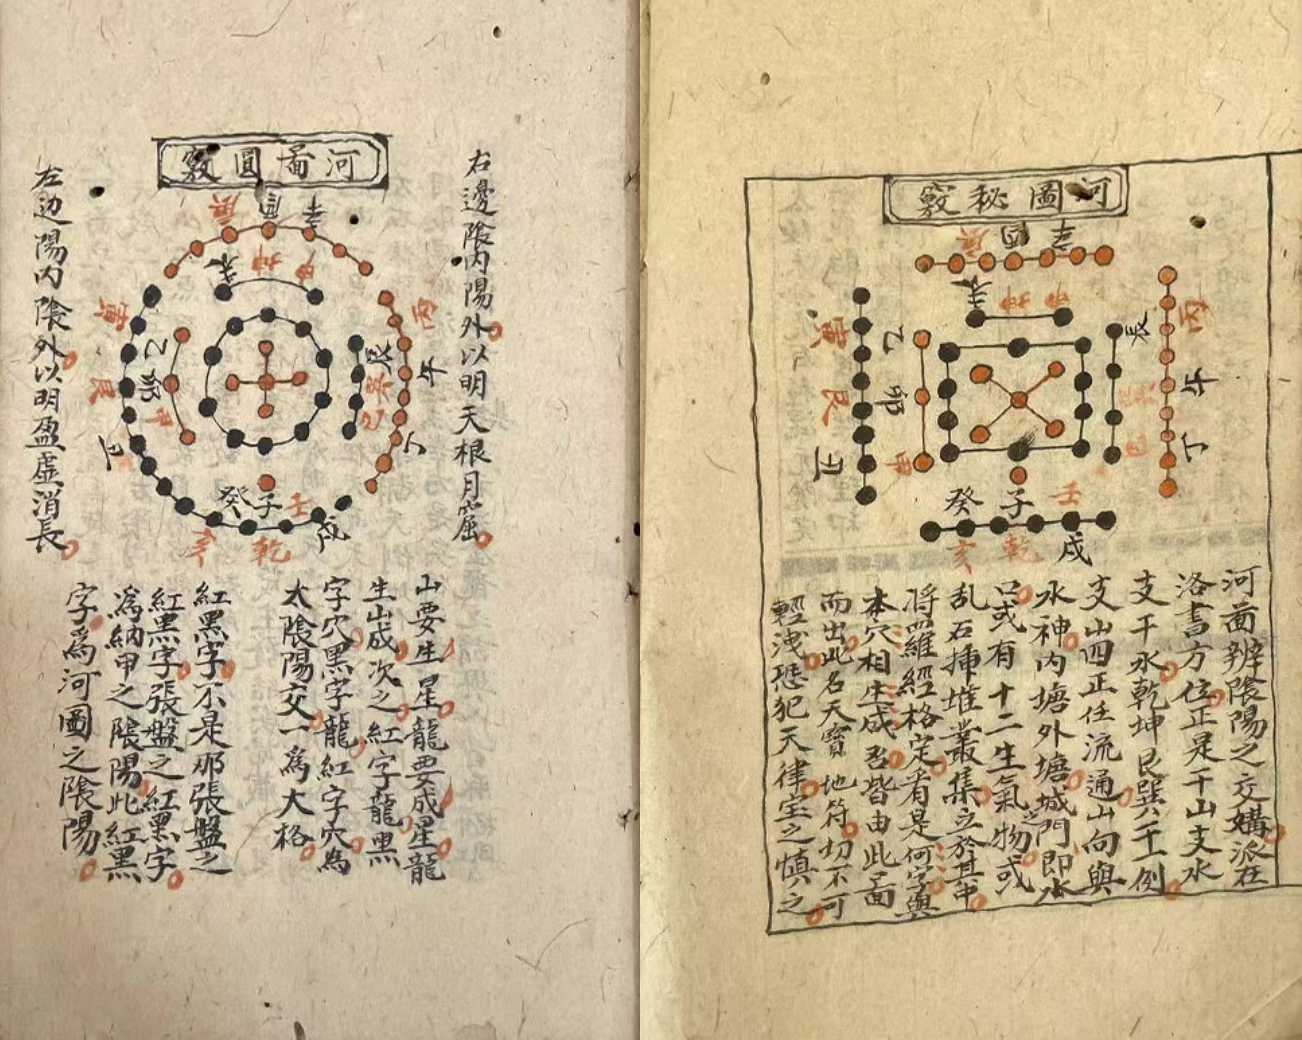 河圖秘竅
庚酉辛
未坤申
寅艮丑
乙卯甲
辰
丙午丁
癸子壬
亥乾戌
河啚辨陰陽之交媾派在
洛書方位正是干山支水
支干水乾坤艮巽
支山四正任流通山向與
水神内塘外塘城門即水
口或有十二生氣之物或
乱石挿堆叢集立於其中
将羅經格定看是何字與
本穴相生成否皆由此啚
而出此名天寶地符切不可
輕洩恐犯天律宝之慎之
河啚圓竅
右邊陰内陽外以明天根月窟
庚酉辛
未坤申
寅艮丑
乙卯甲
辰巽巳
丙午丁
癸子壬
亥乾戌
左边陽内陰外以明盈虛消長
山要生星龍要成星龍
生山成次之紅字龍黑
字穴黑字龍紅字穴為
太陰陽交一為大格
紅黑字不是那張盤之
紅黑字張盤之紅黑字
為納甲之陰陽此紅黑
字為河圖之陰陽